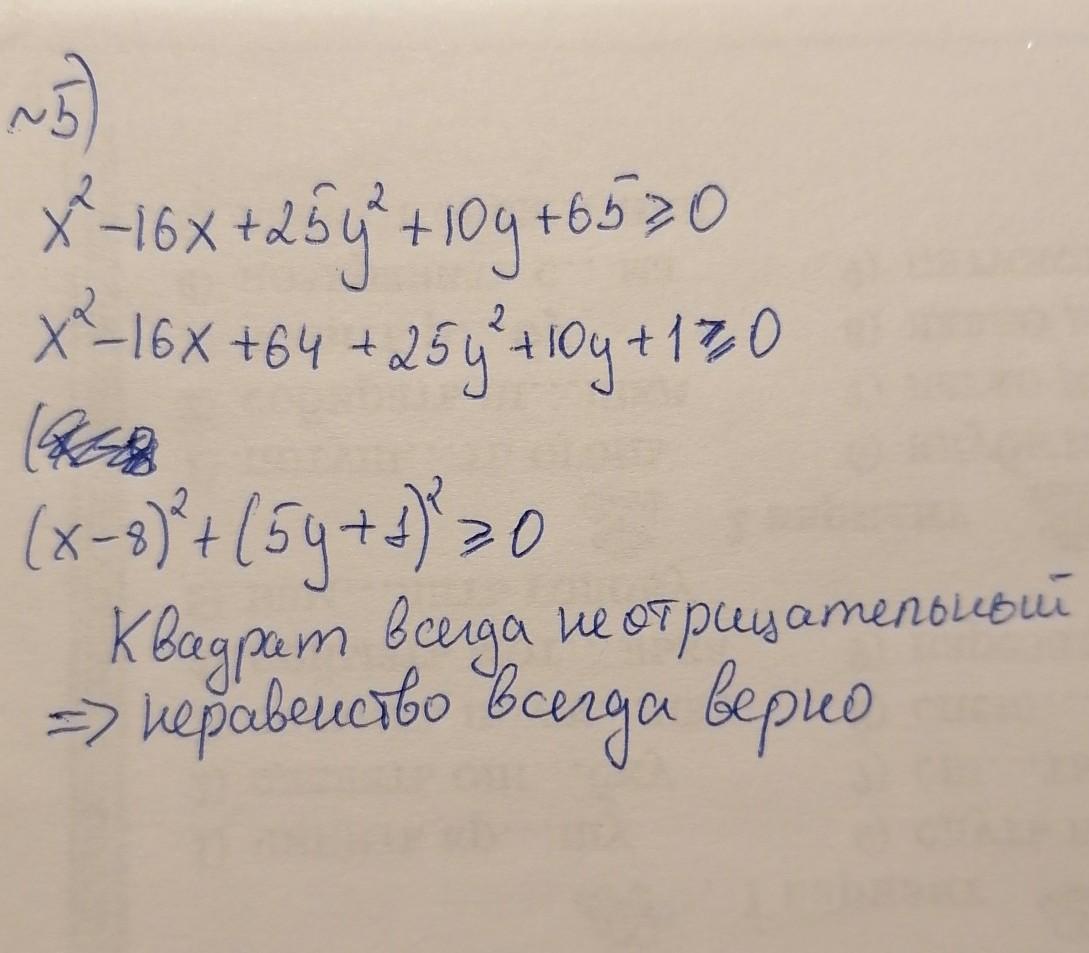 ~5)
x²-16x+25y²+10y+65≥0
x²-16x+64+25y²+10y+1≥0
(
(x-8)²+(5y+1)²≥0
Квадрат всегда неотрицательный
=> неравенство всегда верно